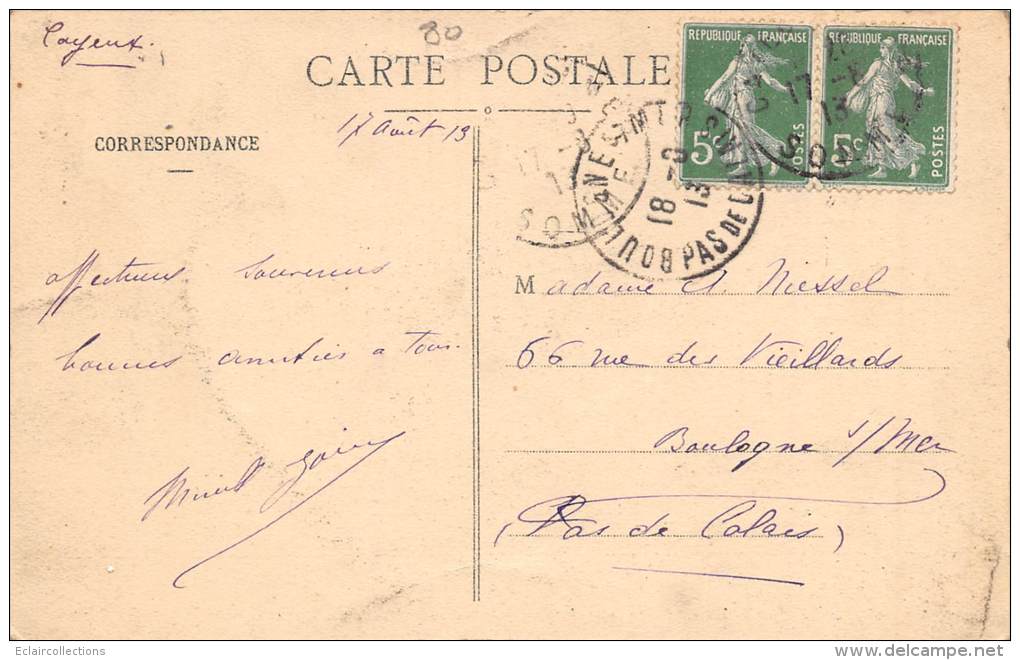 Cayeux.
80
CARTE POSTALE
RÉPUBLIQUE FRANÇAISE
5c
POSTES
RÉPUBLIQUE FRANÇAISE
5c
POSTES
17 - 8
13
SOMME
17
SOMME
BOULOGNE S MER
PAS DE CALAIS
18 - 8
13
17 Août 13
CORRESPONDANCE
affectueux souvenirs
bonnes amitiés a tous.
Madame A. Niessel
66 rue des Vieillards
Boulogne s/Mer
(Pas de Calais)
Eclaircollections
www.delcampe.net